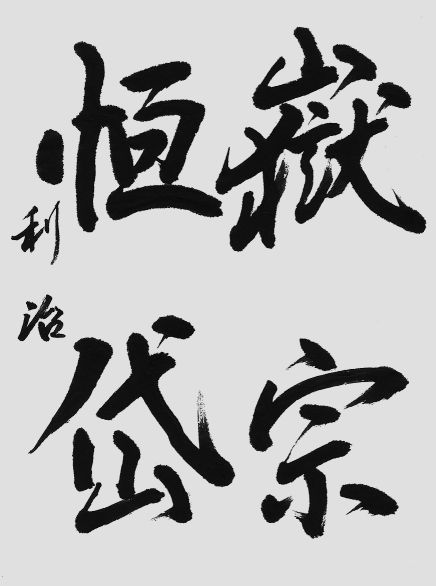 嶽宗
恒岱
利治